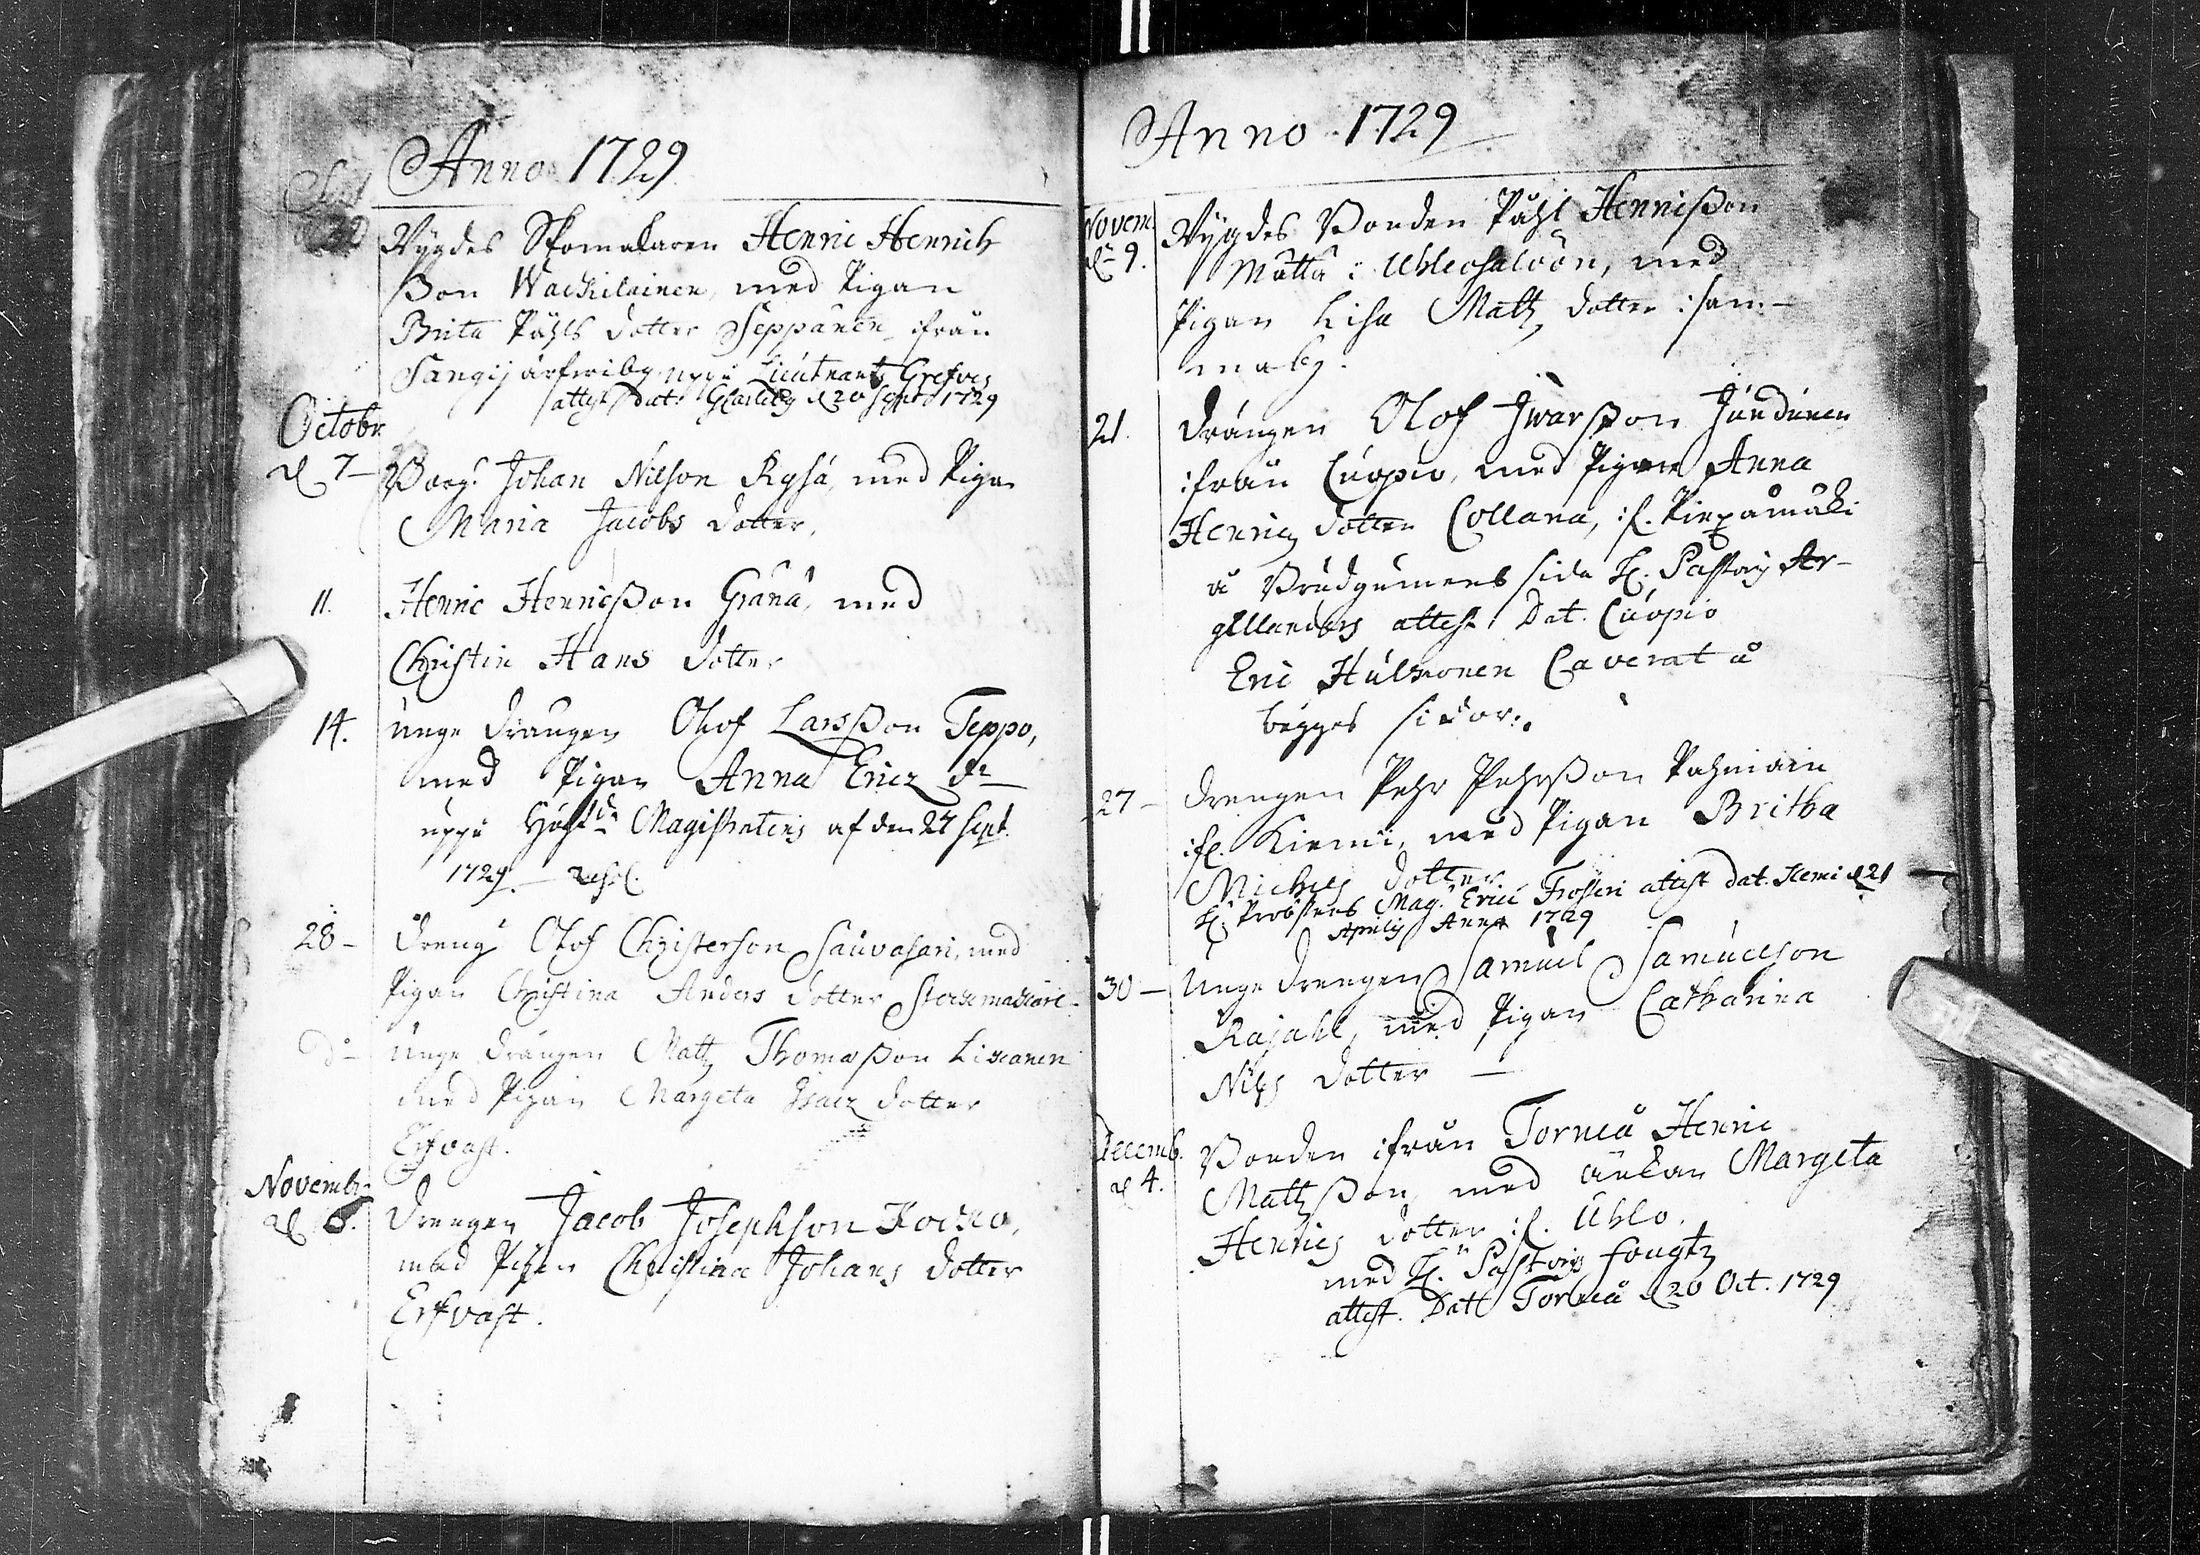 Anno 1729
Sept
22 Wÿgdes Skomakaren Henric Henrich
ßon Wackilainen, med Pigan
Brita Påhls dotter Seppänen ifrån
Sangijärfwiby uppå Lieutnants Grefves
attest dat: d. 20 Sept: 1729
Octobr.
d. 7 – Borg. Johan Nilson Rysä, med Pigan
Maria Jacobs dotter.
11. Henric Henricßon Granä, med
Christin Hans dotter
14. unge drängen Olof Larsßon Teppo,
med Pigan Anna Ericz dr
uppå Magistratens af den 27 Sept.
1729. resol.
28 – dreng Olof Christerson Sauvasari, med
Pigan Christina Anders dotter
do – unge drängen Matz Thomasßon Liscanen
med Pigan Margeta Isacz dotter
Erfvast.
Novembr.
d. 5. Drengen Jacob Josephson Koisko,
med Pigan Christina Johans dotter
Erfvast.
Anno 1729
Novem. Wÿgdes Bonden Påhl Henricßon
d. 9. Matta i Uhleosaloön, med
Pigan Lisa Matz dotter: sam-
maby.
21. drängen Olof Iwarßon
ifrån Cuopio, med Pigan Anna
Henrics dotter Collana, if. Pirpämäki
å Brudgumens sida H. Pastoris Ar-
gillanders attest Dat. Cuopio
Eric Hulkonen Caverat å
bägges sidor.
27 – drengen Pehr Pehrßon
ifr. Kiemi, med Pigan Britha
Michels dotter
H. Probstens Mag. Erici Frosteri attest dat. Kemi d 21
Aprilis Anno 1729
30 – Unge drengen Samuel Samuelson
Rajahl, med Pigan Catharina
Nils dotter –
Decemb. Bonden ifrån Torneå Henric
d 4. Matzßon, med änkan Margeta
Henrics dotter if. Uhlo.
med H. Pastoris Fougtz
attest. Dat Torneå d 20 Oct. 1729